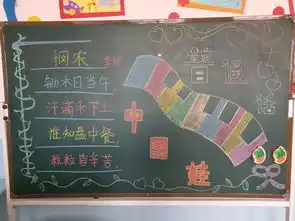 悯农 李绅
锄禾日当午
汗滴禾下土
谁知盘中餐
粒粒皆辛苦
普通话
中国娃